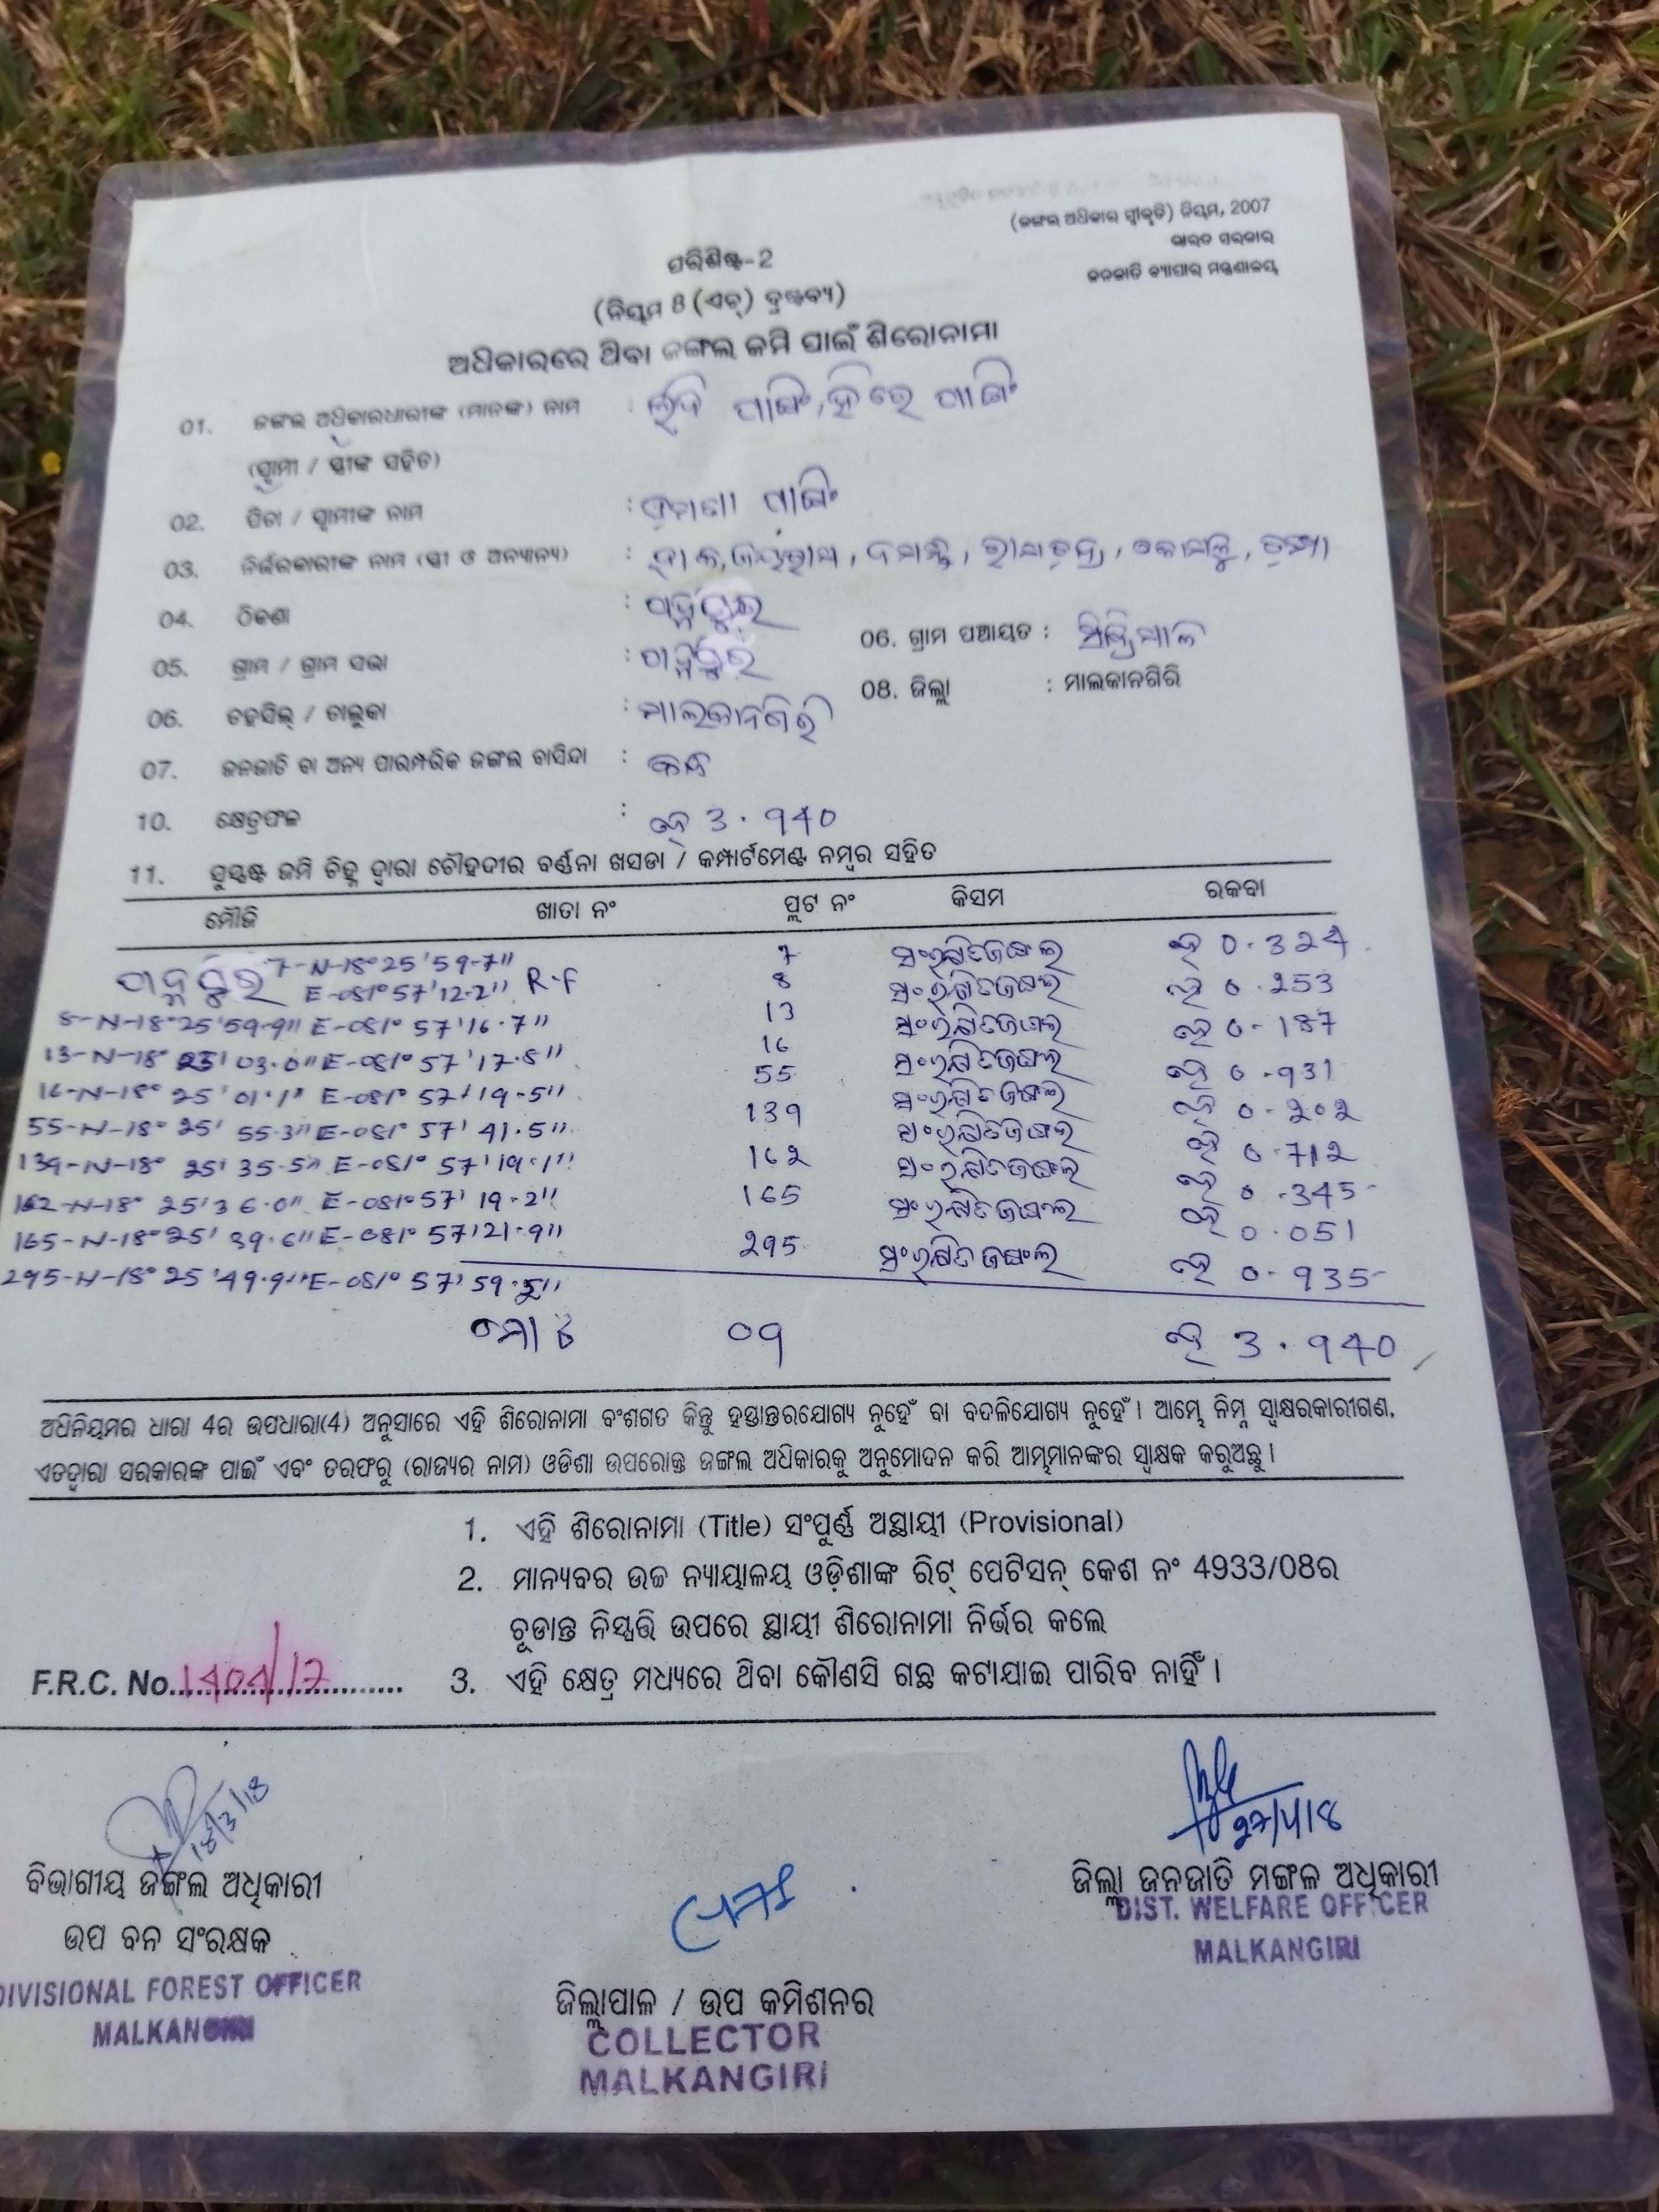 (ଜଙ୍ଗଲ ଅଧିକାର ସ୍ୱୀକୃତି) ନିୟମ, 2007
ଭାରତ ସରକାର
ଜନଜାତି ବ୍ୟାପାର ମନ୍ତ୍ରଣାଳୟ
ପରିଶିଷ୍ଟ-2
(ନିୟମ 8 (ଏଚ୍) ଦ୍ରଷ୍ଟବ୍ୟ)
ଅଧିକାରରେ ଥିବା ଜଙ୍ଗଲ ଜମି ପାଇଁ ଶିରୋନାମା
01. ଜଙ୍ଗଲ ଅଧିକାରଧାରୀଙ୍କ (ମାନଙ୍କ) ନାମ :
(ସ୍ୱାମୀ / ସ୍ତ୍ରୀଙ୍କ ସହିତ)
02. ପିତା / ସ୍ୱାମୀଙ୍କ ନାମ :
03. ନିର୍ଭରକାରୀଙ୍କ ନାମ (ସ୍ତ୍ରୀ ଓ ଅନ୍ୟାନ୍ୟ) :
04. ଠିକଣା :
05. ଗ୍ରାମ / ଗ୍ରାମ ସଭା :
06. ଗ୍ରାମ ପଞ୍ଚାୟତ :
06. ତହସିଲ୍ / ତାଲୁକା : ମାଲକାନଗିରି
08. ଜିଲ୍ଲା : ମାଲକାନଗିରି
07. ଜନଜାତି ବା ଅନ୍ୟ ପାରମ୍ପରିକ ଜଙ୍ଗଲ ବାସିନ୍ଦା :
10. କ୍ଷେତ୍ରଫଳ : ହେ 3.940
11. ସୁସ୍ପଷ୍ଟ ଜମି ଚିହ୍ନ ଦ୍ୱାରା ଚୌହଦୀର ବର୍ଣ୍ଣନା ଖସଡା / କମ୍ପାର୍ଟମେଣ୍ଟ ନମ୍ବର ସହିତ
ମୌଜି ଖାତା ନଂ ପ୍ଲଟ ନଂ କିସମ ରକବା
7-N-18°25'59.7" 7 ସଂରକ୍ଷିତ ଜଙ୍ଗଲ ହେ 0.324
E-081°57'12.2" R.F 8 ସଂରକ୍ଷିତ ଜଙ୍ଗଲ ହେ 0.253
8-N-18°25'59.9" E-081°57'16.7" 13 ସଂରକ୍ଷିତ ଜଙ୍ଗଲ ହେ 0.187
13-N-18° 25' 03.0" E-081° 57'17.8" 16 ସଂରକ୍ଷିତ ଜଙ୍ଗଲ ହେ 0.931
16-N-18° 25' 01.1" E-081° 57'19.5" 55 ସଂରକ୍ଷିତ ଜଙ୍ଗଲ ହେ 0.202
55-N-18° 25' 55.3" E-081° 57' 41.5" 139 ସଂରକ୍ଷିତ ଜଙ୍ଗଲ ହେ 0.712
139-N-18° 25' 35.5" E-081° 57'19.1" 162 ସଂରକ୍ଷିତ ଜଙ୍ଗଲ ହେ 0.345
162-N-18° 25'36.0" E-081°57' 19.2" 165 ସଂରକ୍ଷିତ ଜଙ୍ଗଲ ହେ 0.051
165-N-18°25' 39.6" E-081° 57'21.9" 295 ସଂରକ୍ଷିତ ଜଙ୍ଗଲ ହେ 0.935
295-N-18° 25'49.9" E-081° 57' 59.5"
ମୋଟ 09 ହେ 3.940
ଅଧିନିୟମର ଧାରା 4ର ଉପଧାରା(4) ଅନୁସାରେ ଏହି ଶିରୋନାମା ବଂଶଗତ କିନ୍ତୁ ହସ୍ତାନ୍ତରଯୋଗ୍ୟ ନୁହେଁ ବା ବଦଳିଯୋଗ୍ୟ ନୁହେଁ । ଆମ୍ଭେ ନିମ୍ନ ସ୍ୱାକ୍ଷରକାରୀଗଣ,
ଏତଦ୍ୱାରା ସରକାରଙ୍କ ପାଇଁ ଏବଂ ତରଫରୁ (ରାଜ୍ୟର ନାମ) ଓଡିଶା ଉପରୋକ୍ତ ଜଙ୍ଗଲ ଅଧିକାରକୁ ଅନୁମୋଦନ କରି ଆମ୍ଭମାନଙ୍କର ସ୍ୱାକ୍ଷକ କରୁଅଛୁ ।
1. ଏହି ଶିରୋନାମା (Title) ସଂପୂର୍ଣ୍ଣ ଅସ୍ଥାୟୀ (Provisional)
2. ମାନ୍ୟବର ଉଚ୍ଚ ନ୍ୟାୟାଳୟ ଓଡ଼ିଶାଙ୍କ ରିଟ୍ ପେଟିସନ୍ କେଶ ନଂ 4933/08ର
ଚୂଡାନ୍ତ ନିସ୍ପତ୍ତି ଉପରେ ସ୍ଥାୟୀ ଶିରୋନାମା ନିର୍ଭର କଲେ
F.R.C. No.
3. ଏହି କ୍ଷେତ୍ର ମଧ୍ୟରେ ଥିବା କୌଣସି ଗଛ କଟାଯାଇ ପାରିବ ନାହିଁ ।
18/3/18
ବିଭାଗୀୟ ଜଙ୍ଗଲ ଅଧିକାରୀ
ଉପ ବନ ସଂରକ୍ଷକ
DIVISIONAL FOREST OFFICER
MALKANGIRI
ଜିଲ୍ଲାପାଳ / ଉପ କମିଶନର
COLLECTOR
MALKANGIRI
27/4/18
ଜିଲ୍ଲା ଜନଜାତି ମଙ୍ଗଳ ଅଧିକାରୀ
DIST. WELFARE OFFICER
MALKANGIRI